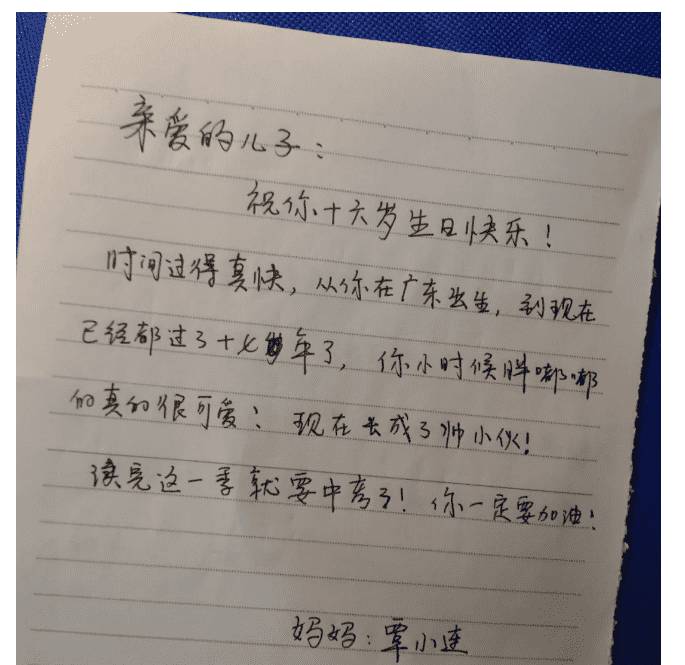 亲爱的儿子:
祝你十六岁生日快乐!
时间过得真快,从你在广东出生,到现在
已经都过了十七年了,你小时候胖嘟嘟
的真的很可爱!现在长成了帅小伙!
读完这一季就要中考了!你一定要加油!
妈妈:覃小连